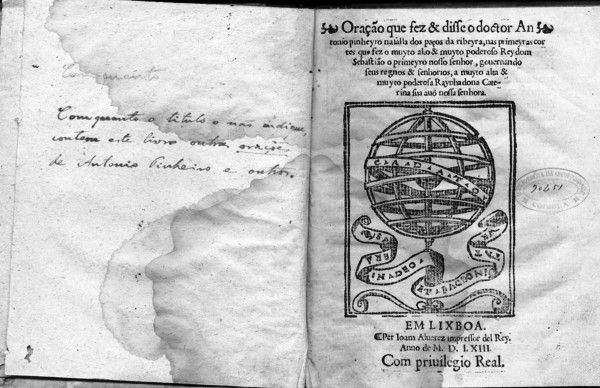 Comquanto
Comquanto o titulo o não indique,
contem este livro outras orações
de Antonio Pinheiro e outros.
Oração que fez & disse o doctor An
tonio pinheyro na salla dos paços da ribeyra, nas primeyras cor
tes que fez o muyto alto & muyto poderoso Rey dom
Sebastião o primeyro nosso senhor, gouernando
seus regnos & senhorios, a muyto alta &
muyto poderosa Raynha dona Cate-
rina sua auó nossa senhora.
SPERA
EM LIXBOA.
Per Ioam Aluarez impressor del Rey.
Anno de M. D. LXIII.
Com priuilegio Real.